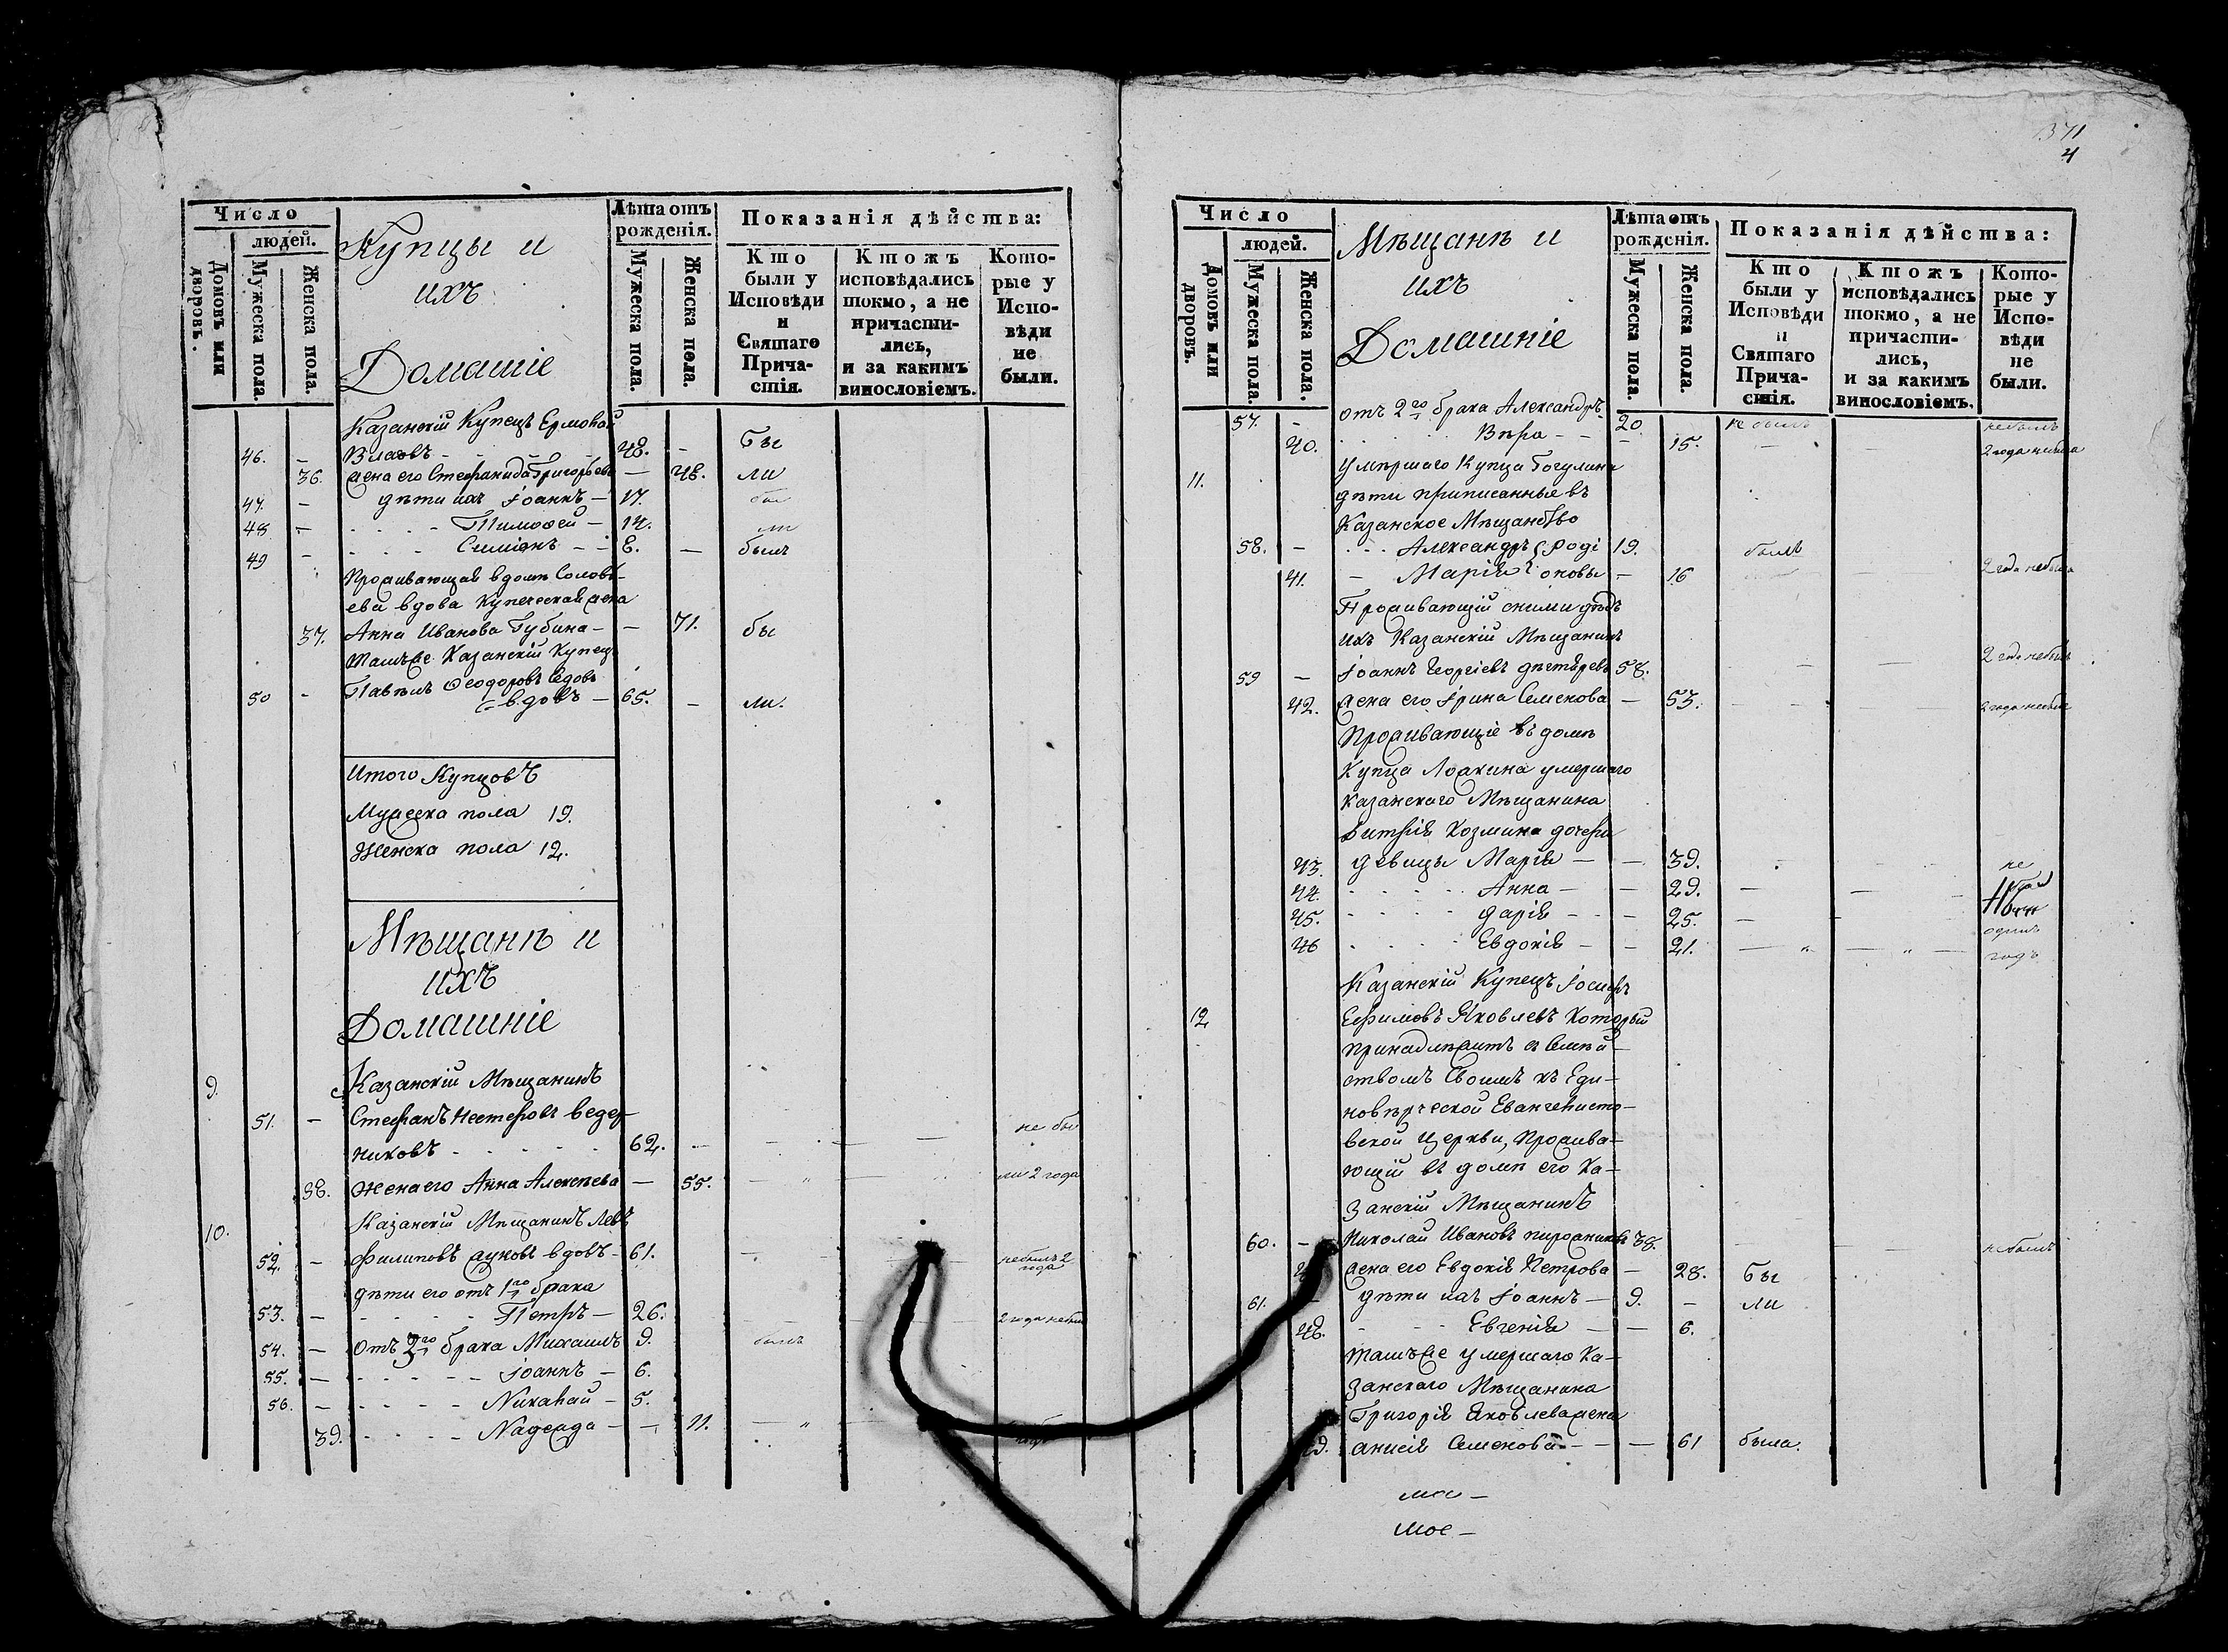 Число
людей.
Домовъ или дворовъ.
Мужеска пола.
Женска пола.
Купцы и
ихъ
Домашніе
Лѣта отъ рожденія.
Мужеска пола.
Женска пола.
Показанія дѣйства:
Кто были у Исповѣди и Святаго Прича- стія.
Ктожъ исповѣдались токмо, а не причасти- лись, и за какимъ винословіемъ.
Кото- рые у Испо- вѣди не были.
Казанскій Купецъ Ермолай
46. – Власовъ - - - 48. – Бы
36. жена его Стефанида Григорьева — 48. ли
47. – дѣти ихъ Іоаннъ – 17. бы
48 – Тимофей – 14. ли
49 – Симіонъ – – 8. — былъ
Проживающая в домѣ Соловь-
ева вдова Купеческая жена
37. Анна Иванова Губина – — 71. бы
Тамъже Казанскій Купец
Павелъ Ѳеодоровъ
50 – вдовъ – 65. – ли.
Итого Купцовъ
Мужеска пола 19.
Женска пола 12.
Мѣщанѣ и
ихъ
Домашніе
9. Казанскій Мѣщанинъ
51. – Стефанъ Нестеровъ Ведер-
никовъ - - - - - 62. — не бы
38. Жена его Анна Алексѣева — 55. ли 2 года
10. Казанскій Мѣщанинъ Левъ
52. – Филиповъ вдовъ – 61. не былъ 2 года
дѣти его отъ 1го брака
53. – Петръ – 26. 2 года не былъ
54. – отъ 2го брака Михаилъ 9. былъ
55. – Іоаннъ – 6.
56. – Николай – 5.
39. Надежда – – 11.
1371
4
Число
людей.
Домовъ или дворовъ.
Мужеска пола.
Женска пола.
Мѣщанѣ и
ихъ
Домашніе
Лѣта отъ рожденія.
Мужеска пола.
Женска пола.
Показанія дѣйства:
Кто были у Исповѣди и Святаго Прича- стія.
Ктожъ исповѣдались токмо, а не причасти- лись, и за какимъ винословіемъ.
Кото- рые у Испо- вѣди не были.
57. – отъ 2го брака Александръ 20 не былъ не былъ
40. Вѣра – – – 15. 2 года не была
11. Умѣршаго Купца
дѣти приписанные въ
Казанское Мѣщанство
58. – Александръ Роді 19. былъ
41. – Марія оновы – 16 2 года не была
Проживающій с ними дѣдъ
ихъ Казанскій Мѣщанинъ
59 – Іоаннъ Георгіевъ Дегтяревъ 58. 2 года не былъ
42. жена его Ірина Семенова – 53. 2 года не была
Проживающіе въ домѣ
Купца Лоакина умершаго
Казанскаго Мѣщанина
Козмина дочери
43. девицы Марія — — 39. не
44. Анна – — 29. были
45. Дарія – – 25.
46 Евдокія – – 21. одинъ годъ
Казанскій Купецъ Іосифъ
12 Ефимовъ Яковлевъ который
принадлежитъ съ Семѣй-
ствомъ Своимъ къ Еди-
новѣрческой Евангелисто-
вской Церкви, прожива-
ющій въ домѣ его Ка-
занскій Мѣщанинъ
60. – Николай Ивановъ 38. не былъ
жена его Евдокія Петрова – 28. бы
61. дѣти ихъ Іоаннъ – 9. – ли
48. Евгенія — — 6.
Тамъже умершаго Ка-
занскаго Мѣщанина
Григорія Яковлева жена
Анисія Семенова – – — 61 была.